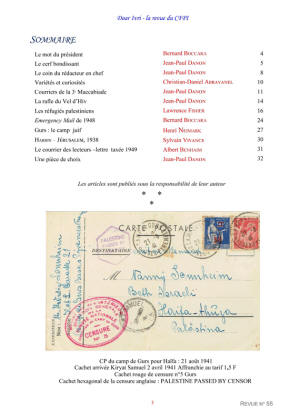 Doar Ivri - la revue du CFPI
SOMMAIRE
Le mot du président Bernard BOCCARA 4
Le cerf bondissant Jean-Paul DANON 5
Le coin du rédacteur en chef Jean-Paul DANON 8
Variétés et curiosités Christian-Daniel ABRAVANEL 10
Courriers de la 3e Maccabiade Jean-Paul DANON 11
La rafle du Vel d'Hiv Jean-Paul DANON 14
Les réfugiés palestiniens Lawrence FISHER 16
Emergency Mail de 1948 Bernard BOCCARA 24
Gurs : le camp juif Henri NEIMARK 27
– JÉRUSALEM, 1938 Sylvain VIVANCE 30
Le courrier des lecteurs –lettre taxée 1949 Albert BENHAIM 31
Une pièce de choix Jean-Paul DANON 32
Les articles sont publiés sous la responsabilité de leur auteur
* *
*
CARTE POSTALE
PALESTINE
DESTINATAIRE
M. Nanny Sonnheim
Beth Israeli
Palestina
CENSURE
CP du camp de Gurs pour Haïfa : 21 août 1941
Cachet arrivée Kiryat Samuel 2 avril 1941 Affranchie au tarif 1,5 F
Cachet rouge de censure n°5 Gurs
Cachet hexagonal de la censure anglaise : PALESTINE PASSED BY CENSOR
3
REVUE N° 55